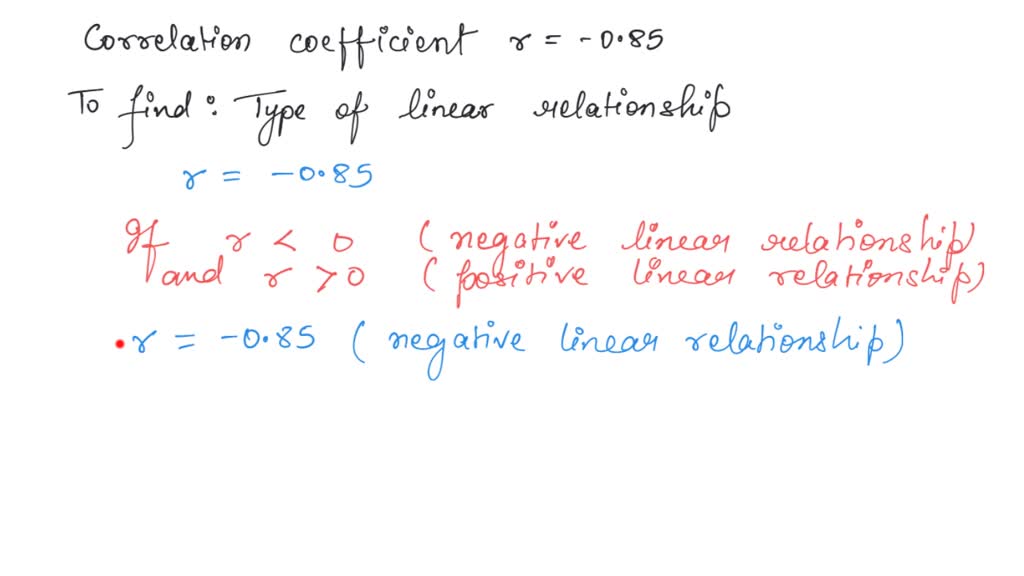 Correlation coefficient r = -0.85
To find: Type of linear relationship
r = -0.85
If r < 0 (negative linear relationship)
and r > 0 (positive linear relationship)
r = -0.85 (negative linear relationship)